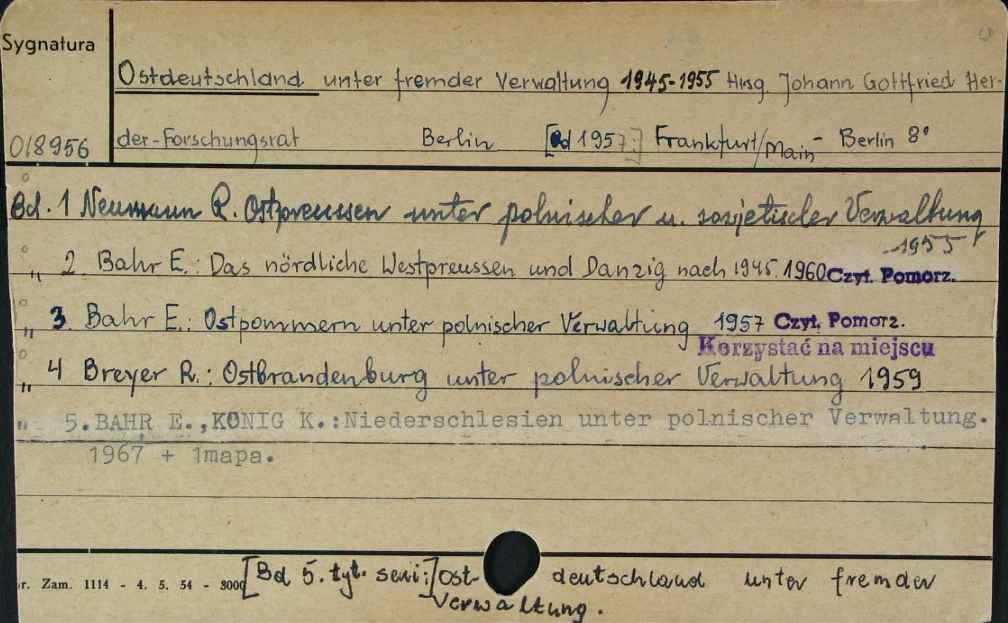 Sygnatura
Ostdeutschland unter fremder Verwaltung 1945-1955 Hrsg. Johann Gottfried Her-
018956 der-Forschungsrat Berlin [Bd 1957:] Frankfurt/Main - Berlin 8°
Bd. 1 Neumann R. Ostpreussen unter polnischer u. sowjetischer Verwaltung
1955
" 2. Bahr E.: Das nördliche Westpreussen und Danzig nach 1945. 1960 Czyt. Pomorz.
" 3. Bahr E.: Ostpommern unter polnischer Verwaltung 1957 Czyt. Pomorz.
Korzystać na miejscu
" 4 Breyer R.: Ostbrandenburg unter polnischer Verwaltung 1959
" 5. BAHR E., KONIG K.: Niederschlesien unter polnischer Verwaltung.
1967 + 1mapa.
r. Zam. 1114 - 4. 5. 54 - 3000 [Bd 5. tyt. serii:] Ost- deutschland unter fremder
Verwaltung.